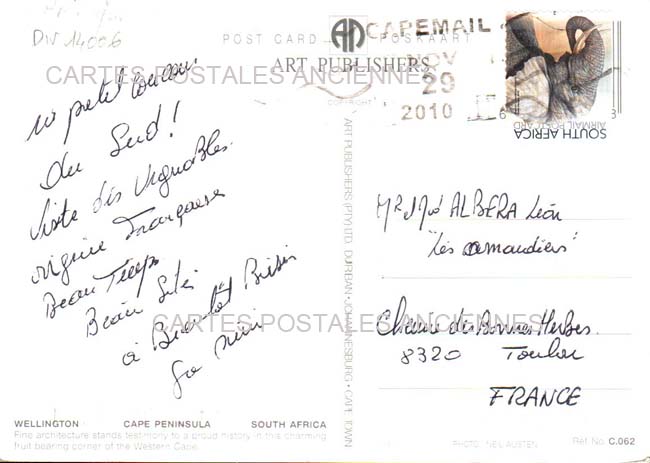 Div 14006
POST CARD POSKAART
ART PUBLISHERS
COPYRIGHT
CAPEMAIL
NOV
29
2010
6
SOUTH AFRICA
AIRMAIL POSTCARD
CARTES POSTALES ANCIENNES
un petit
du Sud!
Visite des Vignobles.
origine Française
Beau Temps
Beau Site
à Bientôt
ART PUBLISHERS (PTY) LTD. DURBAN · JOHANNESBURG · CAPE TOWN
ALBERA Léon
"Les amandiers"
Chemin des Bonnes Herbes.
8320 Toulon
FRANCE
CARTES POSTALES ANCIENNES
WELLINGTON CAPE PENINSULA SOUTH AFRICA
Fine architecture stands testimony to a proud history in this charming
fruit bearing corner of the Western Cape.
PHOTO: NEIL AUSTEN
Ref. No. C.062